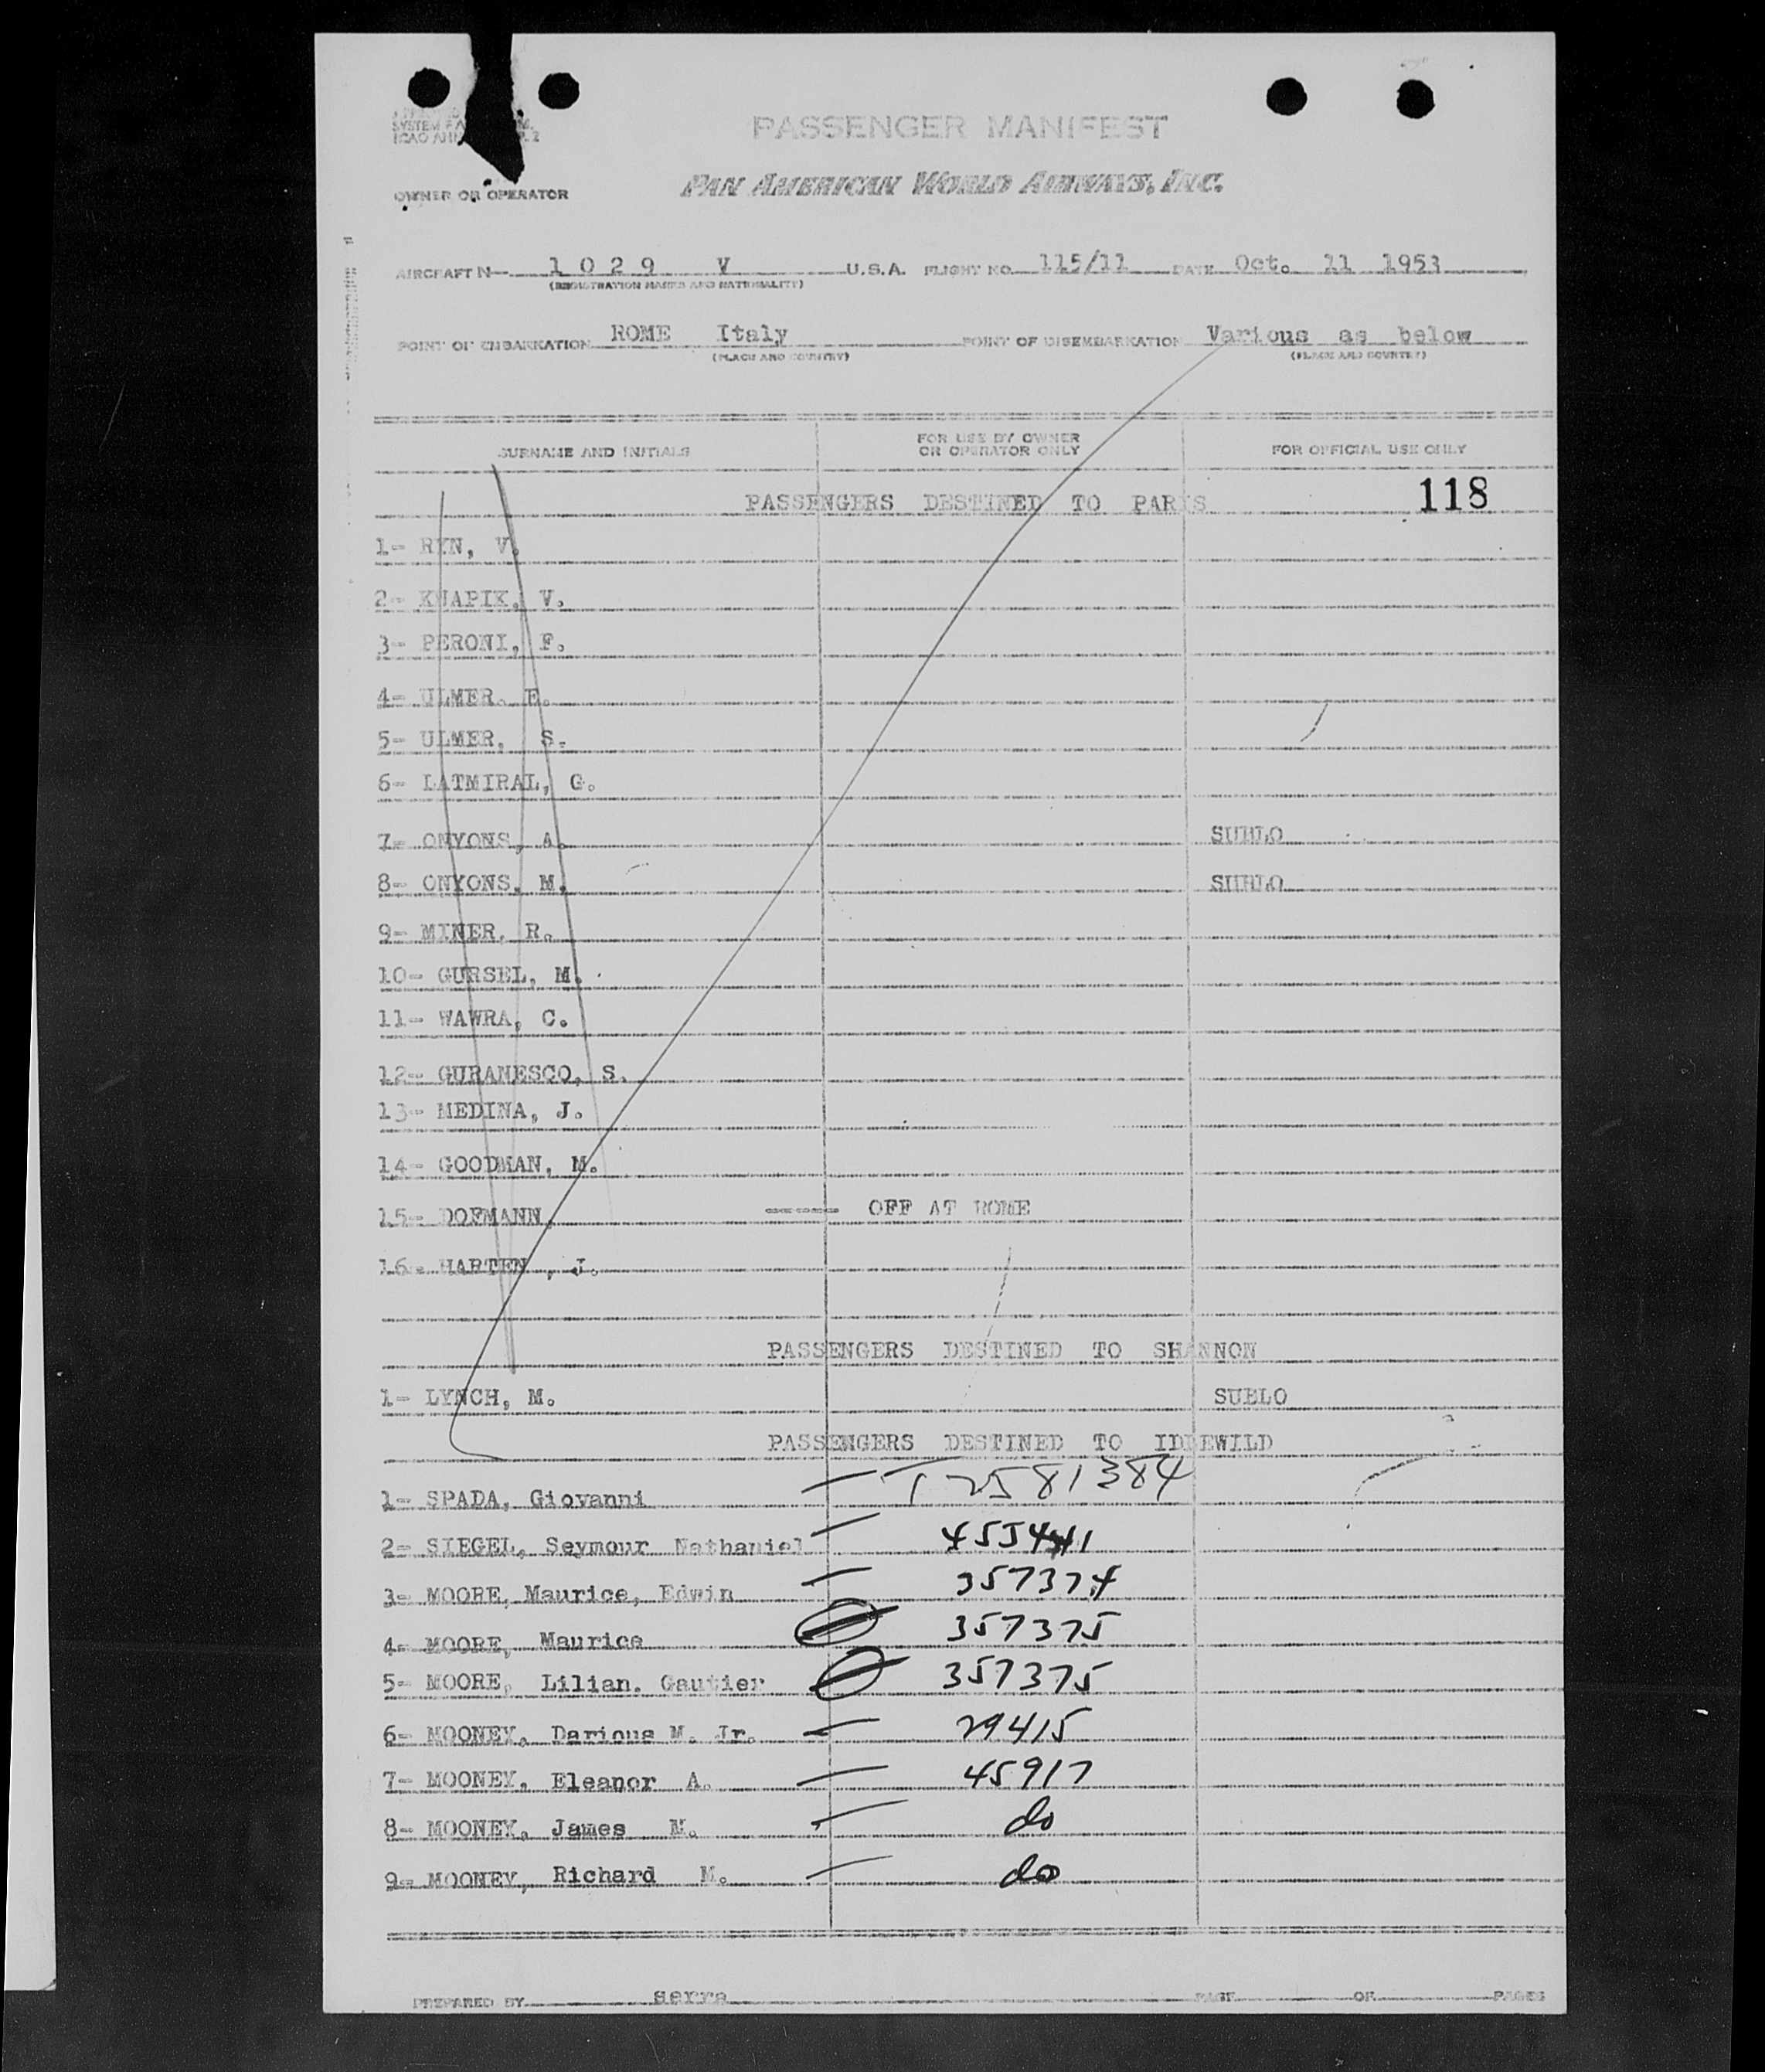 PASSENGER MANIFEST
OWNER OR OPERATOR
PAN AMERICAN WORLD AIRWAYS, INC.
AIRCRAFT N 1 0 2 9 V U.S.A. FLIGHT NO. 115/11 DATE Oct. 11 1953
(REGISTRATION MARKS AND NATIONALITY)
POINT OF EMBARKATION ROME Italy POINT OF DISEMBARKATION Various as below
(PLACE AND COUNTRY) (PLACE AND COUNTRY)
SURNAME AND INITIALS FOR USE BY OWNER OR OPERATOR ONLY FOR OFFICIAL USE ONLY
PASSENGERS DESTINED TO PARIS 118
1- RYN, V.
2- KNAPIK, V.
3- PERONI, F.
4- ULMER. E.
5- ULMER, S.
6- LATMIRAL, G.
7- ONYONS, A. SUBLO
8- ONYONS, M. SUBLO
9- MINER, R.
10- GURSEL, M.
11- WAWRA, C.
12- GURANESCO, S.
13- MEDINA, J.
14- GOODMAN, M.
15- DOFMANN, ----- OFF AT ROME
16- HARTEN , J.
PASSENGERS DESTINED TO SHANNON
1- LYNCH, M. SUBLO
PASSENGERS DESTINED TO IDLEWILD
1- SPADA, Giovanni — T 2581384
2- SIEGEL, Seymour Nathaniel —
3- MOORE, Maurice, Edwin — 357374
4- MOORE, Maurice 357375
5- MOORE, Lilian. Gautier 357375
6- MOONEY, Darious M. Jr. — 29415
7- MOONEY, Eleanor A. — 45917
8- MOONEY, James M. — do
9- MOONEY, Richard M. — do
PREPARED BY serra PAGE OF PAGES